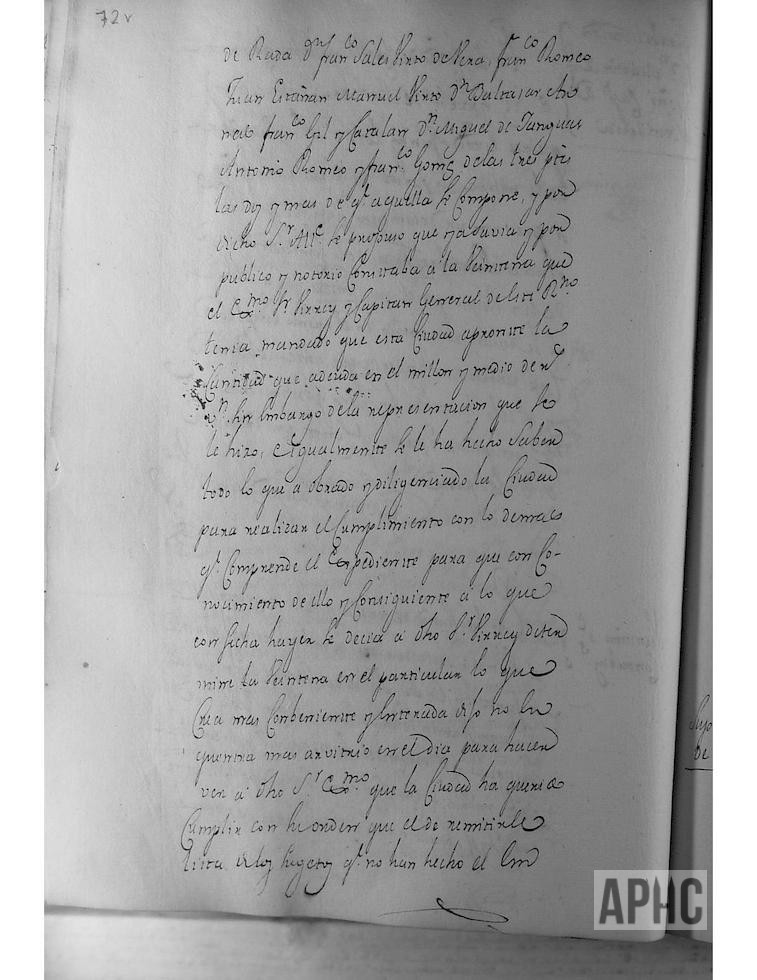 72v
de Rada Dn. franco Sales Pinto de Vera, franco Romeo
Juan Estañan Manuel Pinto Dn. Baltasar Ar
nal franco Gil y Catalan Dn. Miguel de Tarquas
Antonio Romeo y franco Gomz. de las tres ptes
las dos y mas de qe. aquella se Compone, y por
dicho Sr. Alle. se propuso que ya savia y por
publico y notorio Constaba a la Veintena que
el Exmo. Sr. Virrey y Capitan General de este Rno
tenia mandado que esta Ciudad apronte la
Cantidad que adeuda en el millon y medio de rs
vn. sin embargo de la representacion que se
le hizo, e Igualmente se le ha hecho Saber
todo lo que a obrado y diligenciado la Ciudad
para realizar el Cumplimiento con lo demas
qe. Comprende el Expediente para que con Co-
nocimiento de ello y Consiguiente a lo que
con fecha hayer se decia a dho Sr. Virrey deter
mine la Veintena en el particular lo que
Crea mas Conbeniente y Enterada dijo no En
quentra mas arvitrio en el dia para hacer
ver a dho Sr. Exmo. que la Ciudad ha querido
Cumplir con su orden que el de remitirle
lista de los sugetos qe. no han hecho el Em
APHC